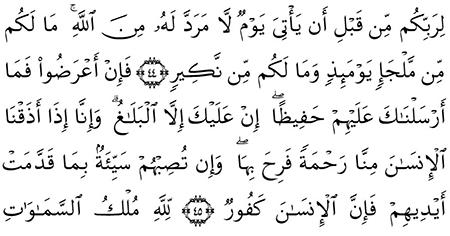 لِرَبِّكُم مِّن قَبْلِ أَن يَأْتِىَ يَوْمٌ لَّا مَرَدَّ لَهُۥ مِنَ ٱللَّهِ ۚ مَا لَكُم
مِّن مَّلْجَإٍ يَوْمَئِذٍ وَمَا لَكُم مِّن نَّكِيرٍ ﴿٤٤﴾ فَإِنْ أَعْرَضُوا۟ فَمَا
أَرْسَلْنَـٰكَ عَلَيْهِمْ حَفِيظًا ۖ إِنْ عَلَيْكَ إِلَّا ٱلْبَلَـٰغُ ۗ وَإِنَّآ إِذَآ أَذَقْنَا
ٱلْإِنسَـٰنَ مِنَّا رَحْمَةً فَرِحَ بِهَا ۖ وَإِن تُصِبْهُمْ سَيِّئَةٌۢ بِمَا قَدَّمَتْ
أَيْدِيهِمْ فَإِنَّ ٱلْإِنسَـٰنَ كَفُورٌ ﴿٤٥﴾ لِّلَّهِ مُلْكُ ٱلسَّمَـٰوَٰتِ